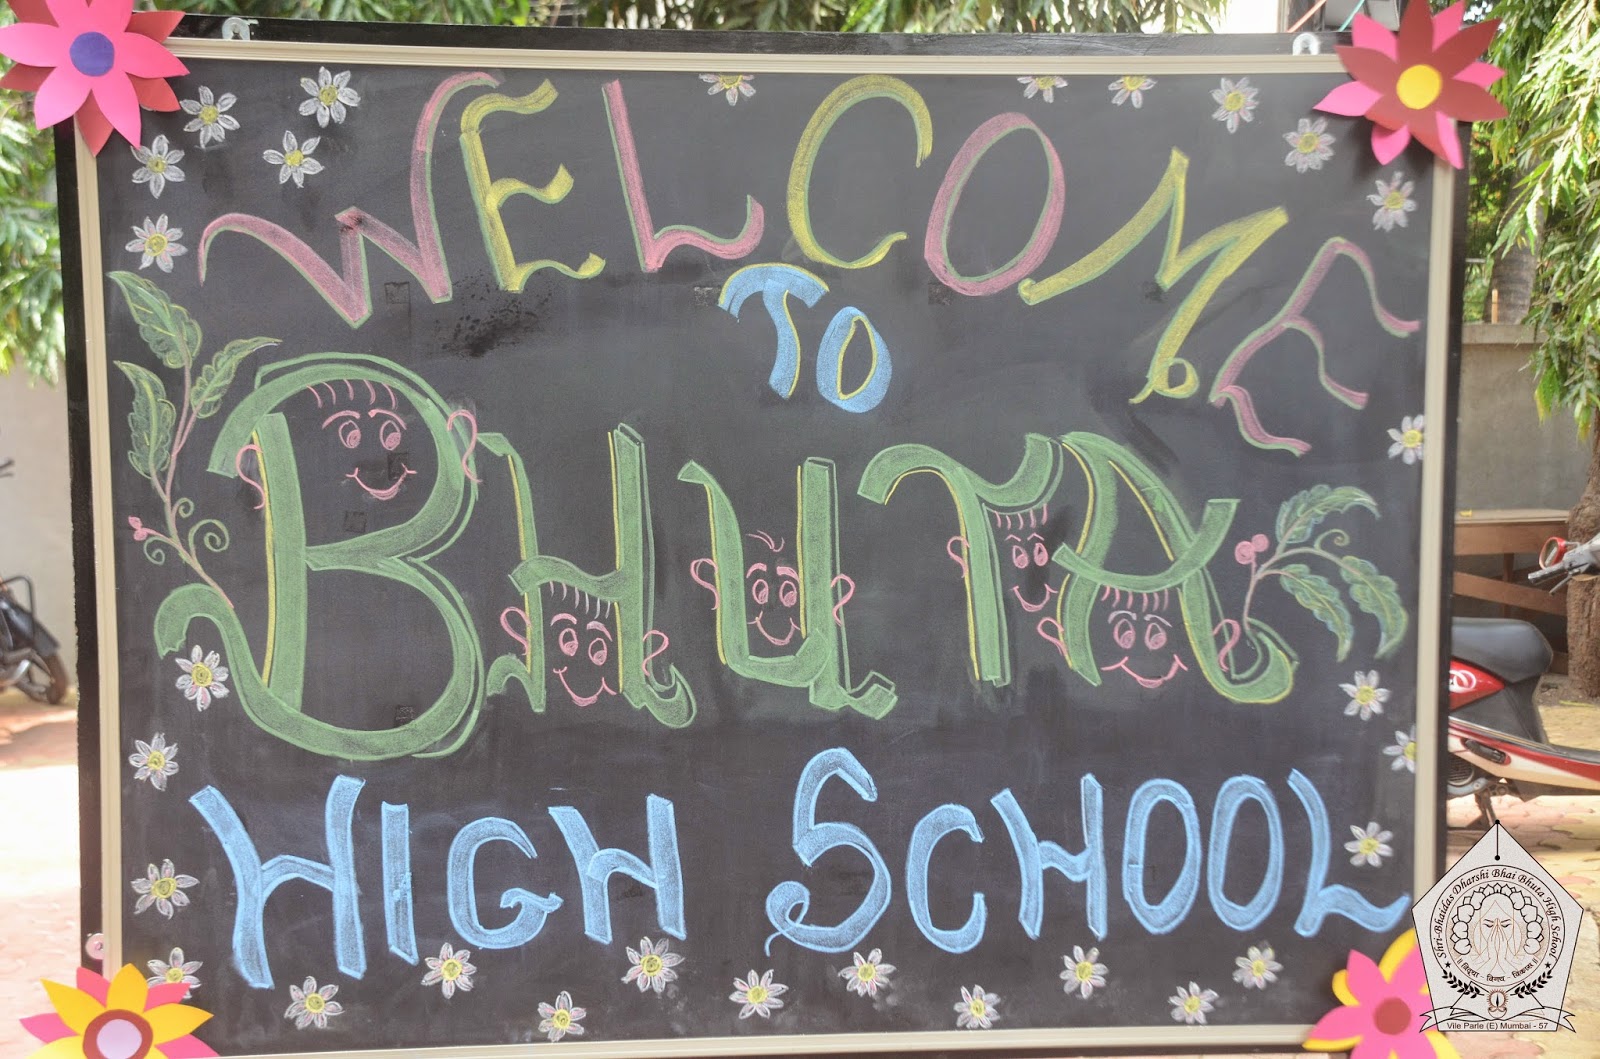 WELCOME
TO
BHUTA
HIGH SCHOOL
Shri-Bhaidas Dharshi Bhai Bhuta High School
॥ विद्या - विनय - विकास ॥
Vile Parle (E) Mumbai - 57